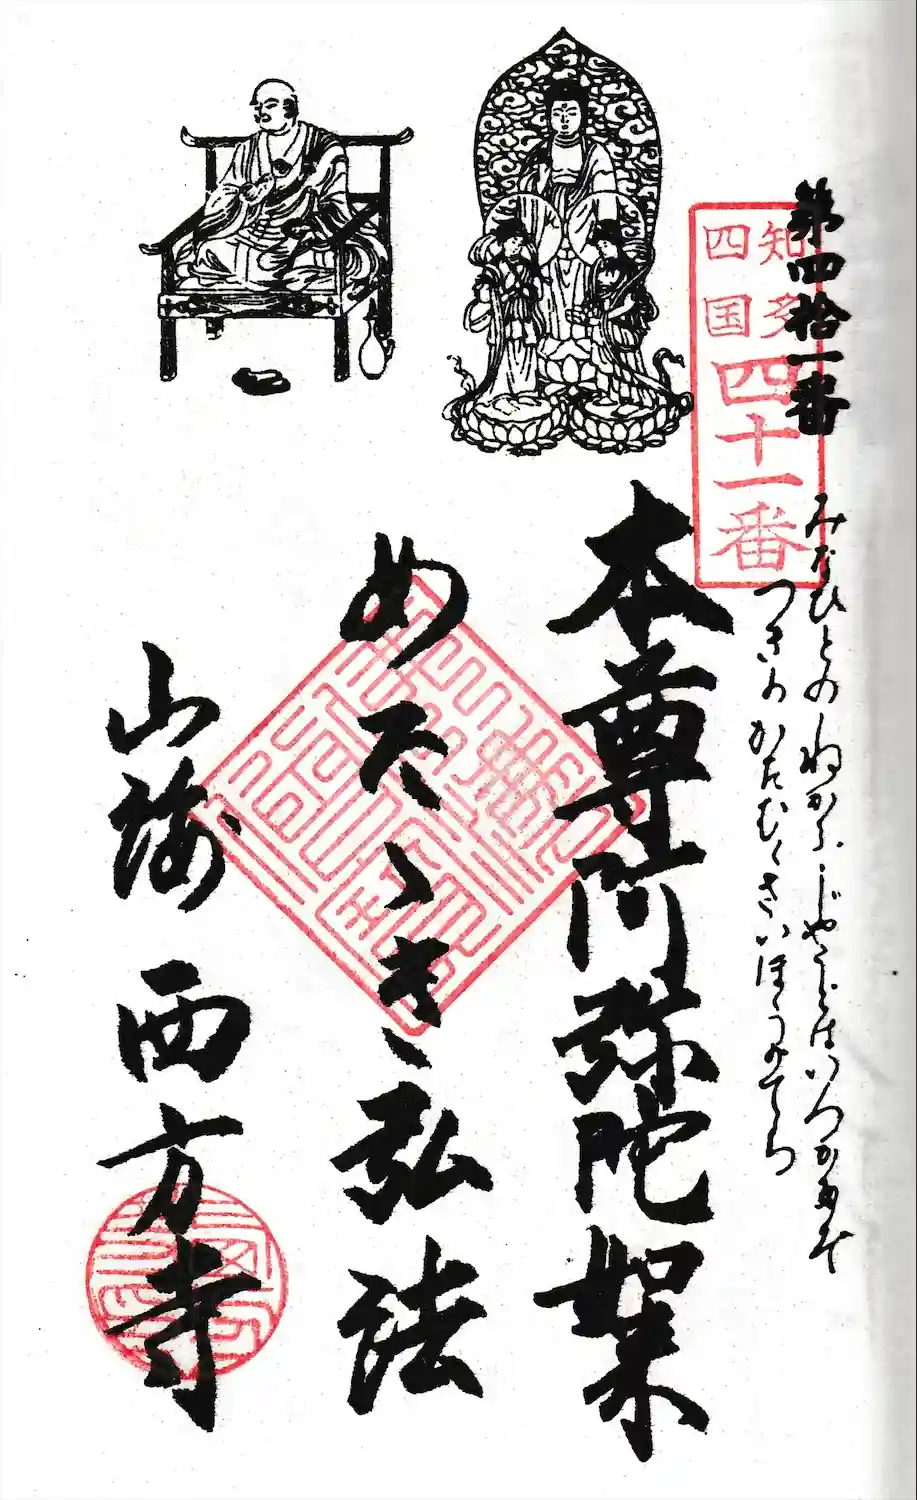 第四拾一番
知多
四国
四十一番
みなひとのねがふじやうどはいつかたぞ
つきのかたむくさいほうのてら
本尊阿弥陀如来
めたゝき弘法
山海 西方寺